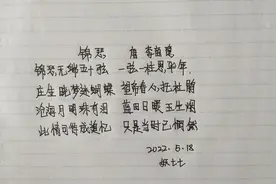 锦瑟 唐 李商隐
锦瑟无端五十弦 一弦一柱思华年
庄生晓梦迷蝴蝶 望帝春心托杜鹃
沧海月明珠有泪 蓝田日暖玉生烟
此情可待成追忆 只是当时已惘然
2022.5.18